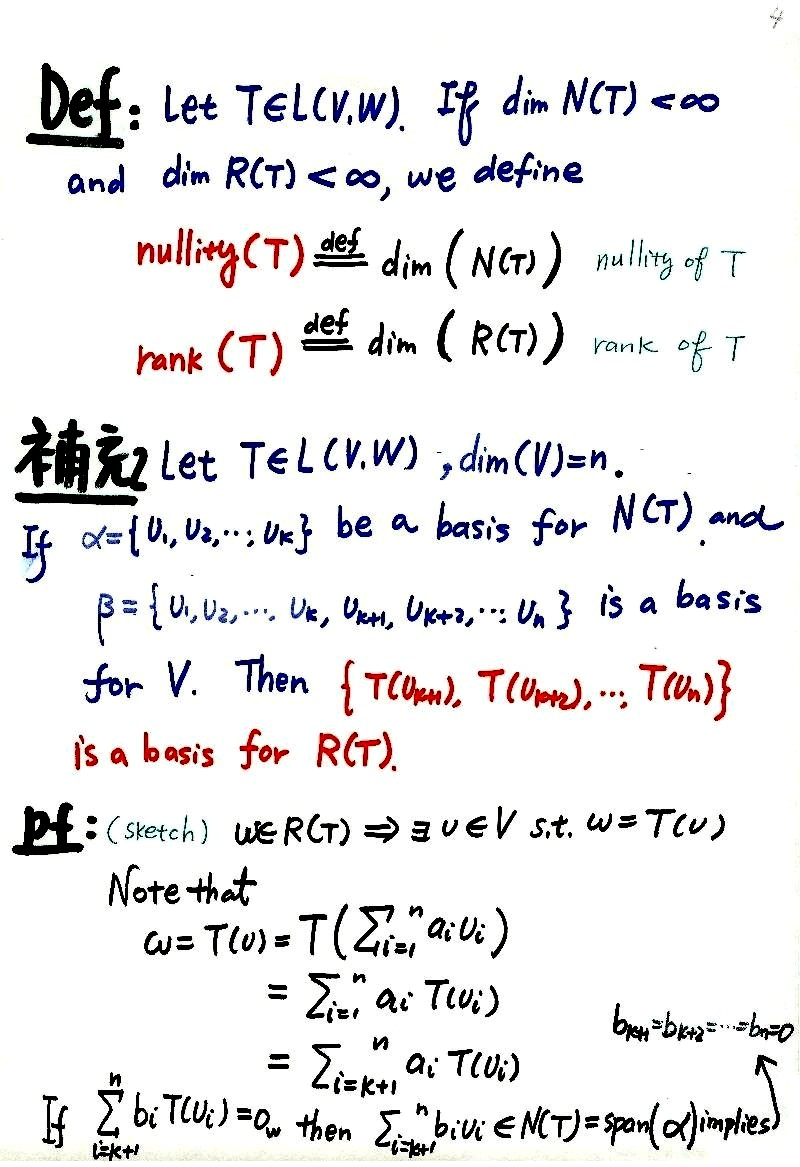 4
Def: Let T∈L(V,W). If dim N(T) <∞
and dim R(T) <∞, we define
nullity(T) def== dim (N(T)) nullity of T
rank (T) def== dim ( R(T)) rank of T
補充2 Let T∈L(V,W) , dim(V)=n.
If α={υ₁, υ₂, ..., υₖ} be a basis for N(T) and
β={υ₁, υ₂, ..., υₖ, υₖ₊₁, υₖ₊₂, ..., υₙ} is a basis
for V. Then {T(υₖ₊₁), T(υₖ₊₂), ..., T(υₙ)}
is a basis for R(T).
pf: (sketch) w∈R(T) ⇒ ∃ υ∈V s.t. w=T(υ)
Note that
w=T(υ)=T(∑ᵢ₌₁ⁿ aᵢυᵢ)
= ∑ᵢ₌₁ⁿ aᵢ T(υᵢ)
= ∑ᵢ₌ₖ₊₁ⁿ aᵢ T(υᵢ)
bₖ₊₁=bₖ₊₂=...=bₙ=0
If ∑ᵢ₌ₖ₊₁ⁿ bᵢT(υᵢ)=0_w then ∑ᵢ₌ₖ₊₁ⁿ bᵢυᵢ∈N(T)=span(α) implies